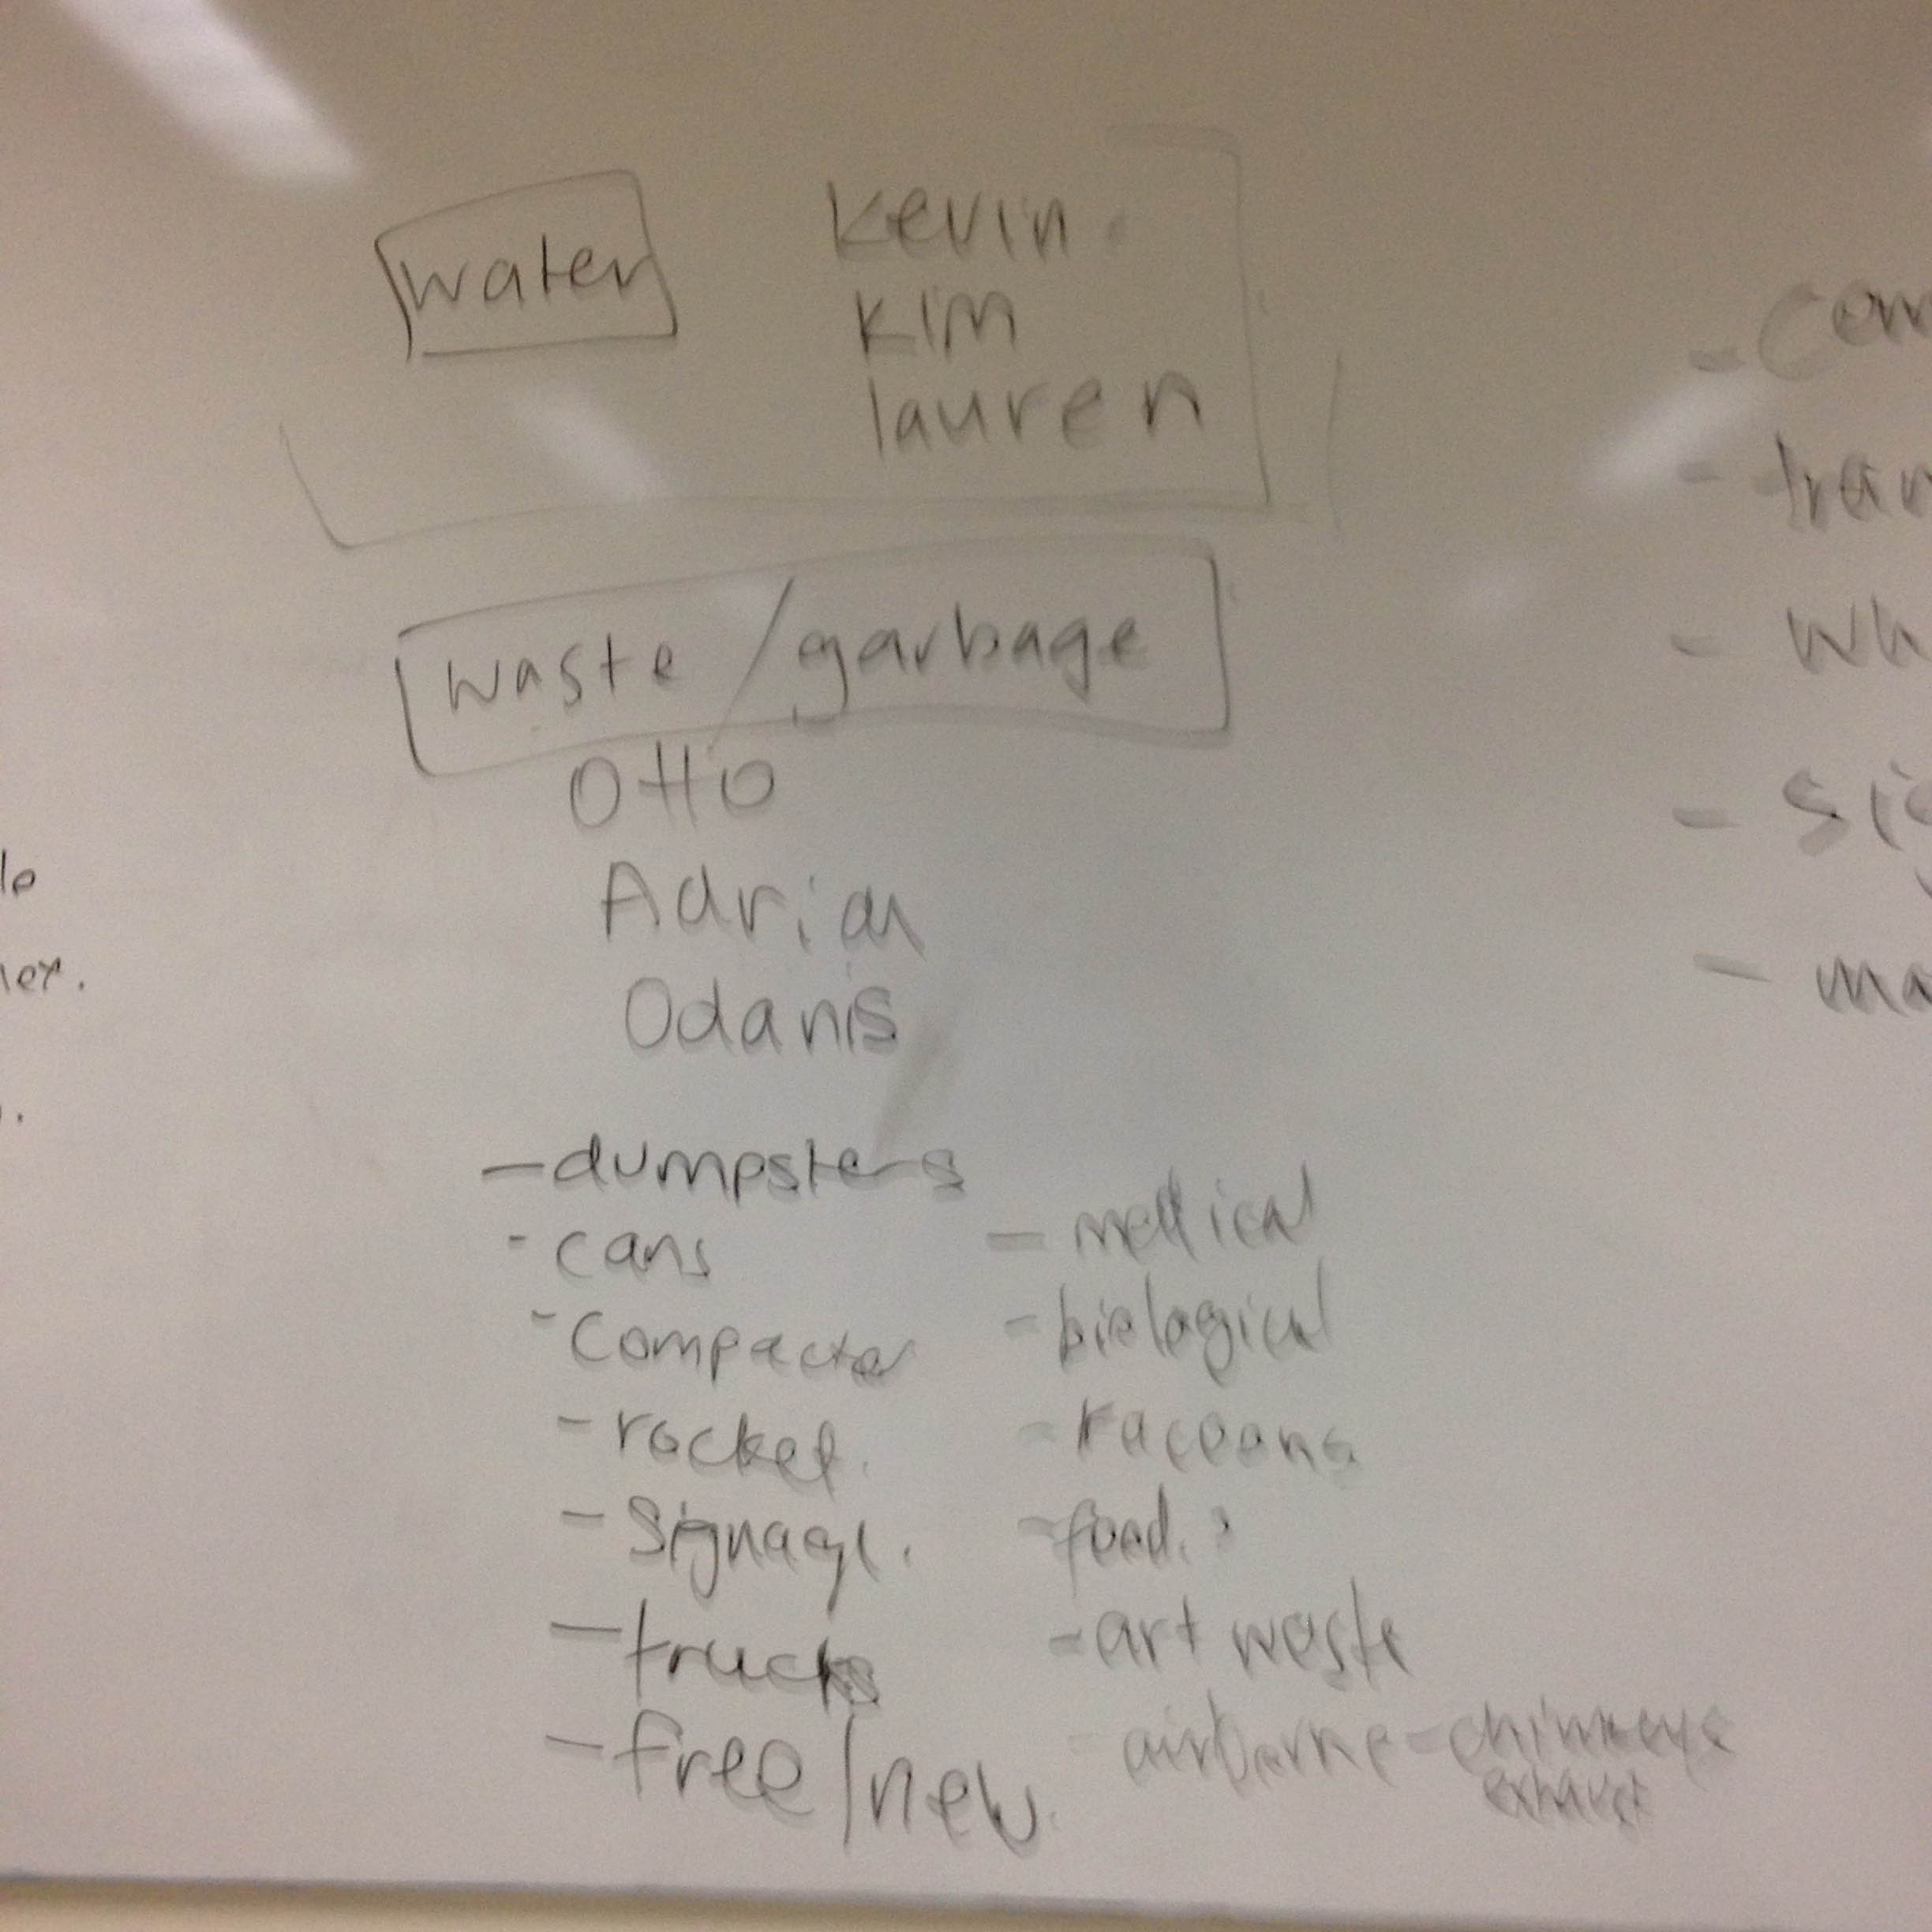 water
Kevin
Kim
lauren
waste / garbage
Otto
Adrian
Odanis
- dumpsters
- cans
- Compactor
- rocket.
- Signage.
- trucks
- free / new.
- medical
- biological
- racoons
- food.
- art waste
- airborne - chimneys
exhaust
ner.
- com
- tran
- wh
- sig
- ma